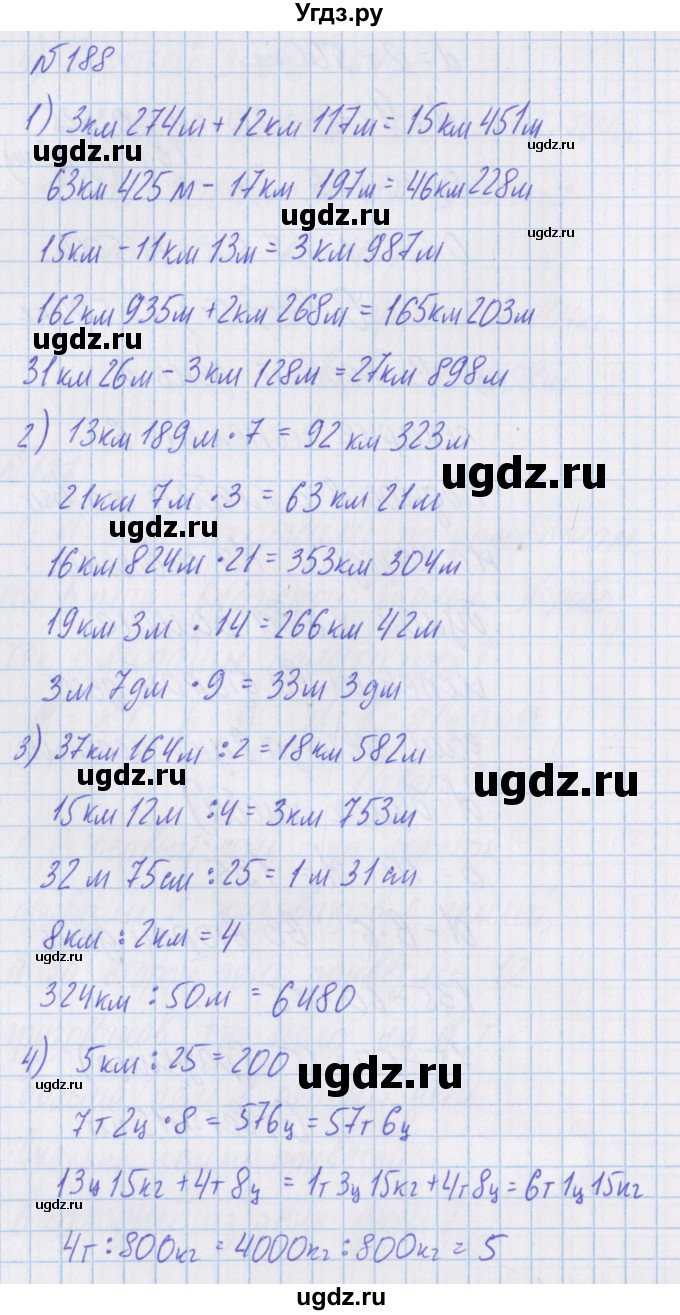 Угдз.ру
№188
1) 3км 274м + 12км 117м = 15км 451м
ugdz.ru
ugdz.ru
63км 425м - 17км 197м = 46км 228м
ugdz.ru
ugdz.ru
15км - 11км 13м = 3км 987м
162км 935м + 2км 268м = 165км 203м
ugdz.ru
31км 26м - 3км 128м = 27км 898м
2) 13км 189м · 7 = 92км 323м
ugdz.ru
21км 7м · 3 = 63км 21м
ugdz.ru
16км 824м · 21 = 353км 304м
19км 3м · 14 = 266км 42м
3м 7дм · 9 = 33м 3дм
3) 37км 164м : 2 = 18км 582м
ugdz.ru
ugdz.ru
15км 12м : 4 = 3км 753м
32м 75см : 25 = 1м 31см
8км : 2км = 4
ugdz.ru
324км : 50м = 6480
4) 5км : 25 = 200
ugdz.ru
ugdz.ru
7т 2ц · 8 = 576ц = 57т 6ц
13ц 15кг + 4т 8ц = 1т 3ц 15кг + 4т 8ц = 6т 1ц 15кг
ugdz.ru
4т : 800кг = 4000кг : 800кг = 5
ugdz.ru